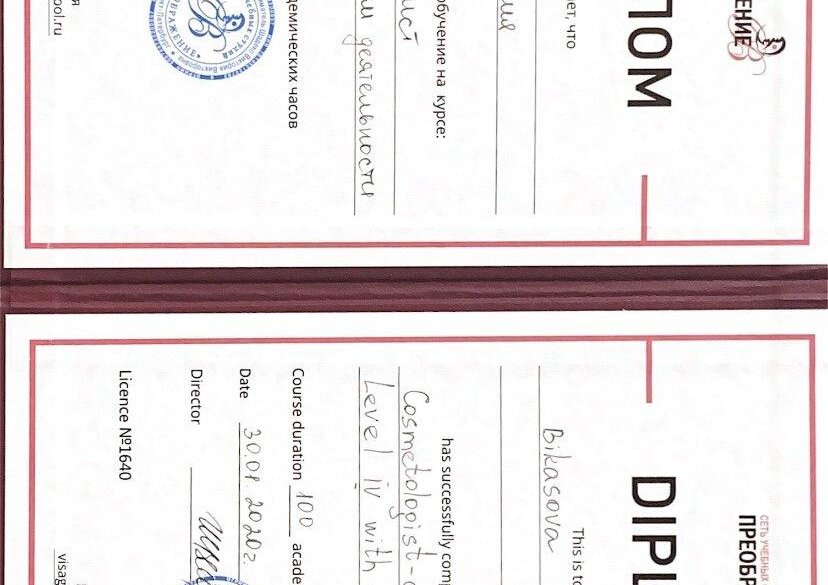 ЕНИЕ
ЛОМ
ет, что
обучение на курсе:
ист
деятельности
демических часов
ool.ru
СЕТЬ УЧЕБНЫХ
ПРЕОБР
DIPL
This is to
Bikasova
has successfully comp
Cosmetologist-
Level IV with
Course duration 100 acade
Date 30.09.2020г.
Director
Licence №1640
visag